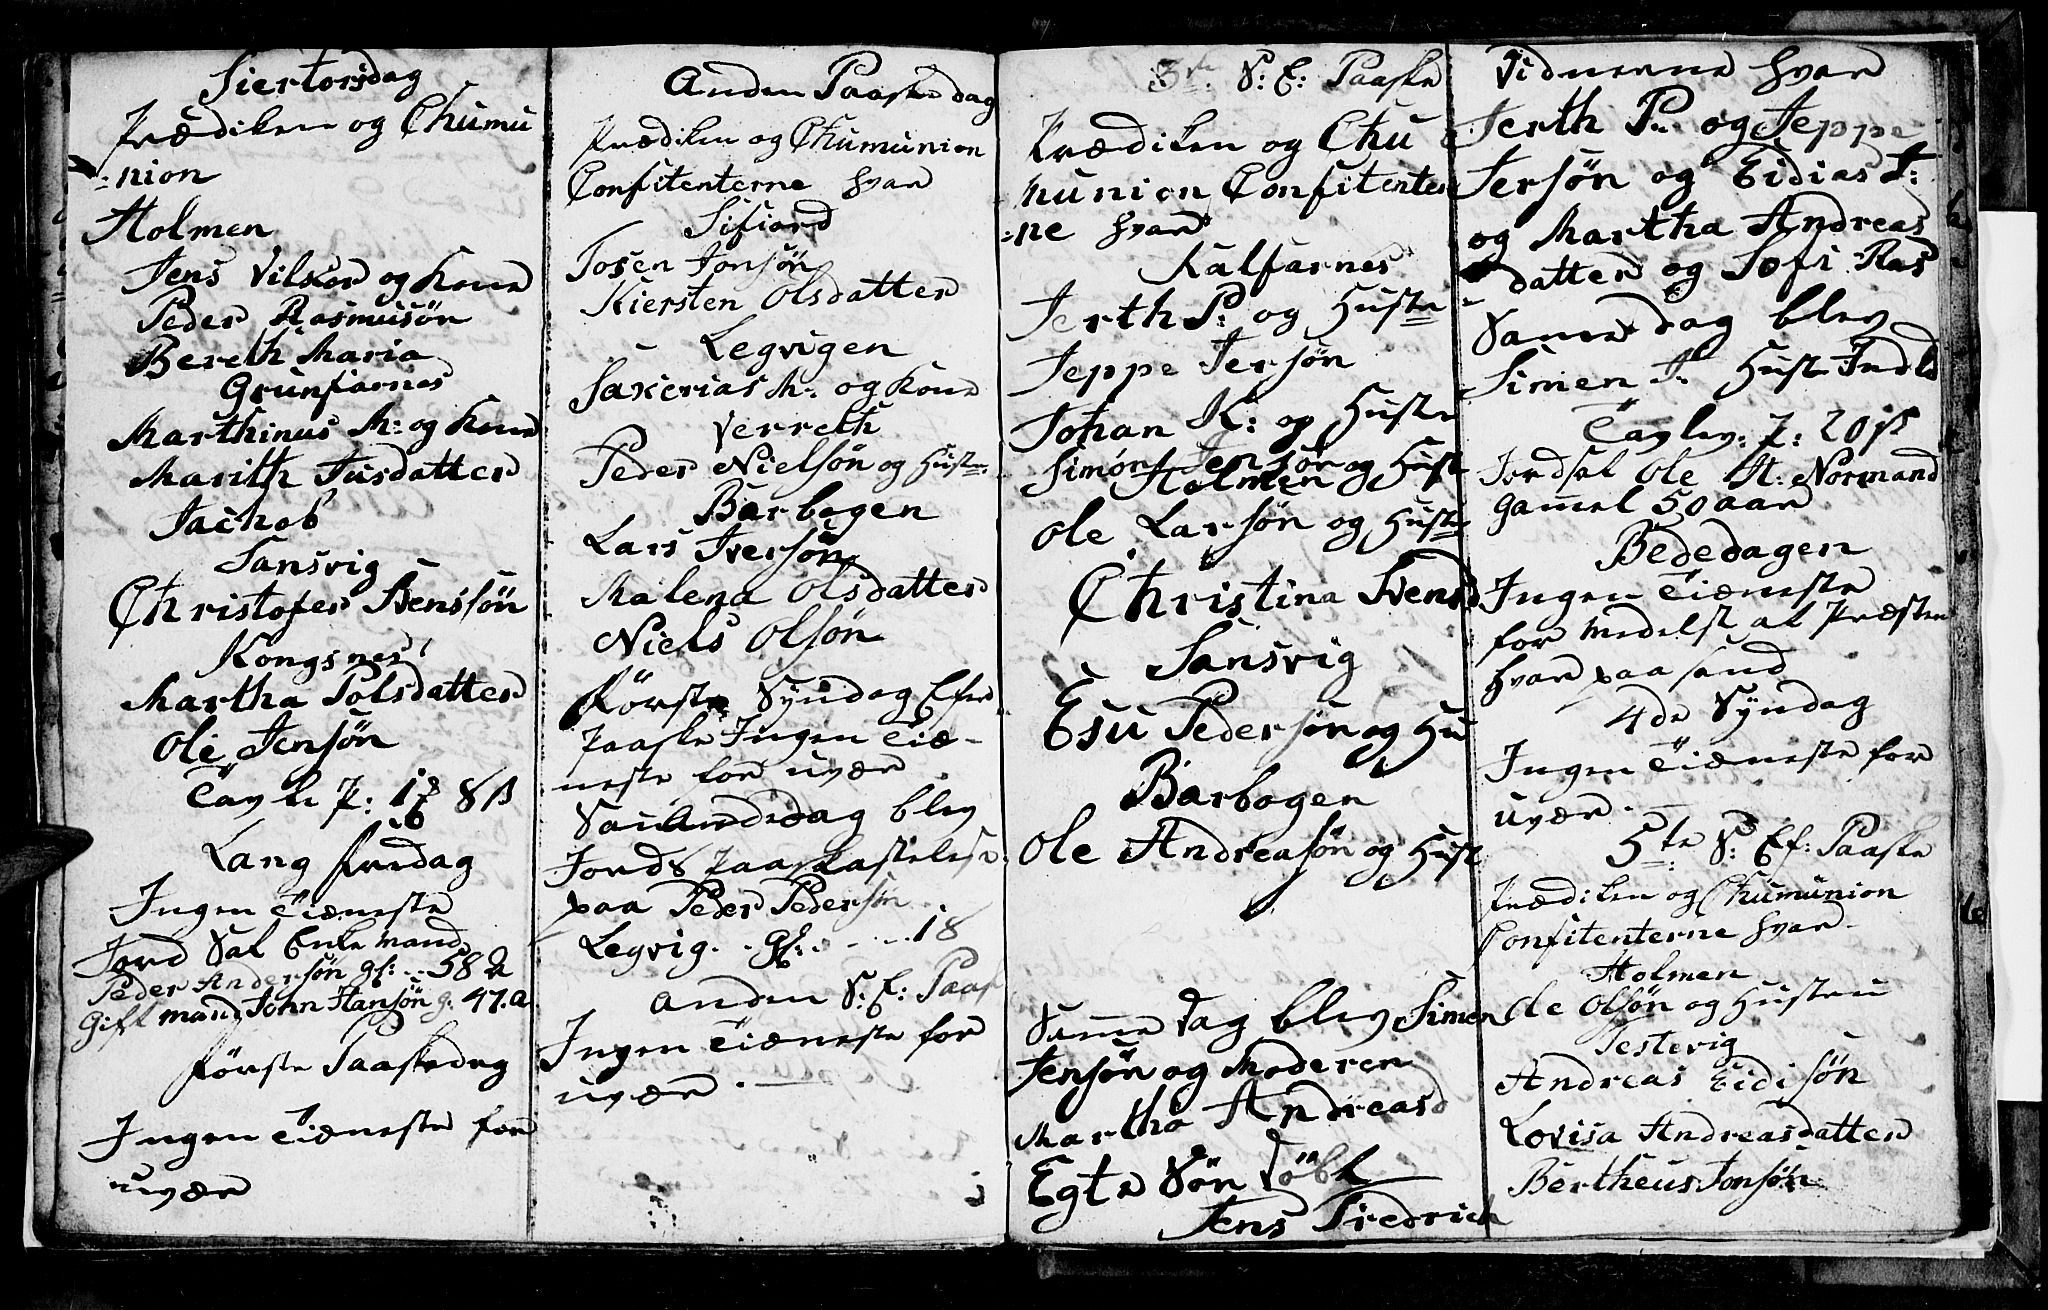 Siertorsdag
Prædiken og Chumu
=nion
Holmen
Jens Vilkor og Kone
Peder Rasmusøn
Bereth Maria
Grunfarnes
Marthinus M: og Kone
Marith Jusdatter
Jachob
Sansvig
Christofer Bensøn
Kongsnes
Martha Polsdatter
Ole Jensøn
Tavle P: 1 8 ß
Lang fredag
Ingen Tiæneste
Jord Sat Enke mand
Peder Andersøn gl: 58 a
Gift mand John Hansøn g. 47. a
Første Paaskedag
Ingen Tiæneste for
uvær
Anden Paaskedag
Prædiken og Chumunion
Confitenterne hvar
Sifiord
Tosen Jonsøn
Kiersten Olsdatter
Legvigen
Saxerias M: og Kone
Verreth
Peder Nielsøn og Hust=
Barbogen
Lars Iversøn
Malena Olsdatter
Niels Olsøn
Første Syndag Efter
Paaske Ingen Tiæ-
neste for uvær
dag blev
Jords
paa Peder Pedersøn
Legvig. gl: 18
Anden S: E: Paas
Ingen Tiæneste for
uvær.
3de S: E: Paaske
Prædiken og Chu
munion Confitenter
=ne hvar
Kalfarnes
Jerth P: og Huste
Jeppe Jersøn
Johan K: og Huste
Simon Jensøn og Hust
Holmen
Ole Larsøn og Huste
Christina Svensd
Sansvig
Esu Pedersøn og Hu
Barbogen
Ole Andreasøn og Hust
Same Dag blev Simen
Jensøn og Moderen
Martha Andreasd
Egte Søn Døbt
Jens Fredrich
Vidnerne hvar
Jerth P: og Jeppe
Jersøn og Eidias J:
og Martha Andreas
datter og Sofi Ras
Same dag blev
Simen J: Hust Indld
Tavlen: P: 20 ß
Jordsat Ole H: Normand
gamel 50 aar
Bededagen
Ingen Tiæneste
for medelst at Præsten
hvar paa sand
4de Syndag
Ingen Tiæneste for
uvær.
5te S: Ef: Paaske
Prædiken og Chumunion
Confitenterne hvar
Holmen
Ole Olsøn og Hustru
Testevig
Andreas Eidisøn
Lovisa Andreasdatter
Bertheus Jonsøn